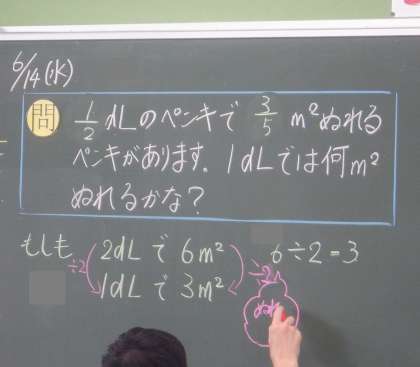 6/14(水)
問 1/2 dLのペンキで 3/5 m²ぬれる
ペンキがあります. 1dLでは何m²
ぬれるかな?
もしも 2dL で 6m² 6÷2=3
÷2 ÷2
1dL で 3m²
ぬれ